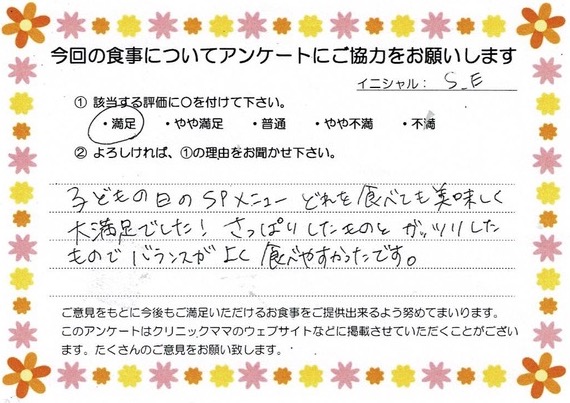 今回の食事についてアンケートにご協力をお願いします
イニシャル： S_E
① 該当する評価に○を付けて下さい。
・満足 ・やや満足 ・普通 ・やや不満 ・不満
② よろしければ、①の理由をお聞かせ下さい。
子どもの日のSPメニューどれを食べても美味しく
大満足でした！さっぱりしたものとガッツリした
ものでバランスが良く食べやすかったです。
ご意見をもとに今後もご満足いただけるお食事をご提供出来るよう努めてまいります。
このアンケートはクリニックママのウェブサイトなどに掲載させていただくことがござい
ます。たくさんのご意見をお願い致します。